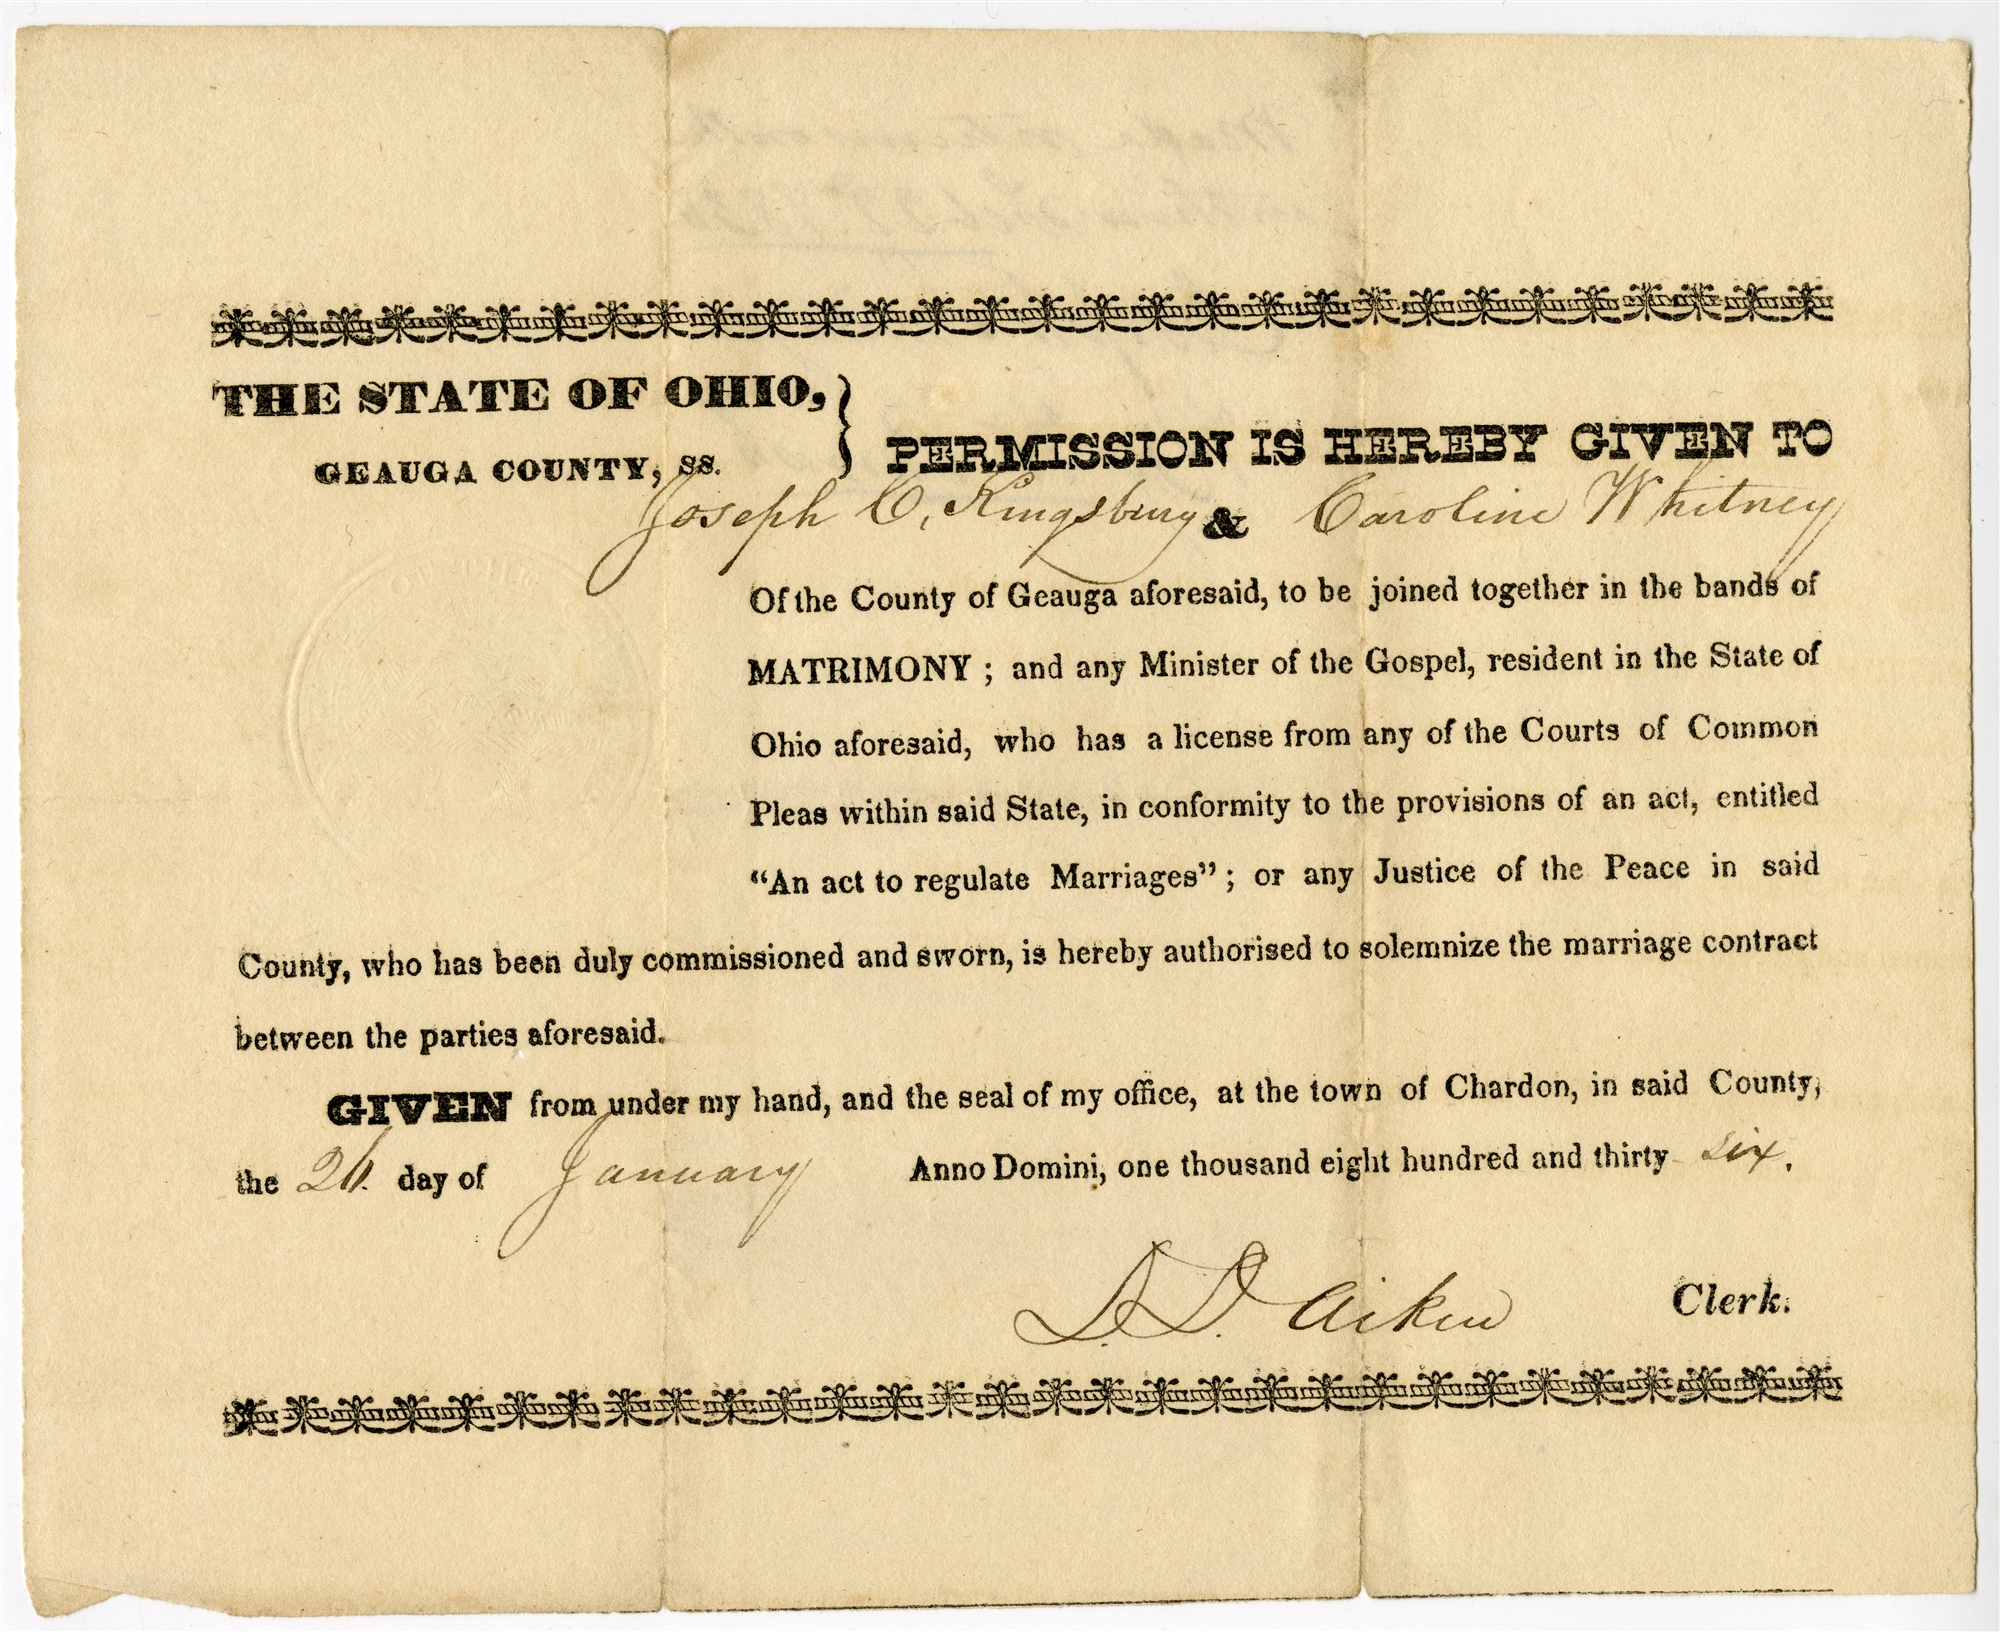 THE STATE OF OHIO,
GEAUGA COUNTY, ss.
PERMISSION IS HEREBY GIVEN TO
Joseph C. Kingsbury & Caroline Whitney
Of the County of Geauga aforesaid, to be joined together in the bands of
MATRIMONY ; and any Minister of the Gospel, resident in the State of
Ohio aforesaid, who has a license from any of the Courts of Common
Pleas within said State, in conformity to the provisions of an act, entitled
“An act to regulate Marriages” ; or any Justice of the Peace in said
County, who has been duly commissioned and sworn, is hereby authorised to solemnize the marriage contract
between the parties aforesaid.
GIVEN from under my hand, and the seal of my office, at the town of Chardon, in said County,
the 26. day of January Anno Domini, one thousand eight hundred and thirty six.
D. D. Aiken Clerk.